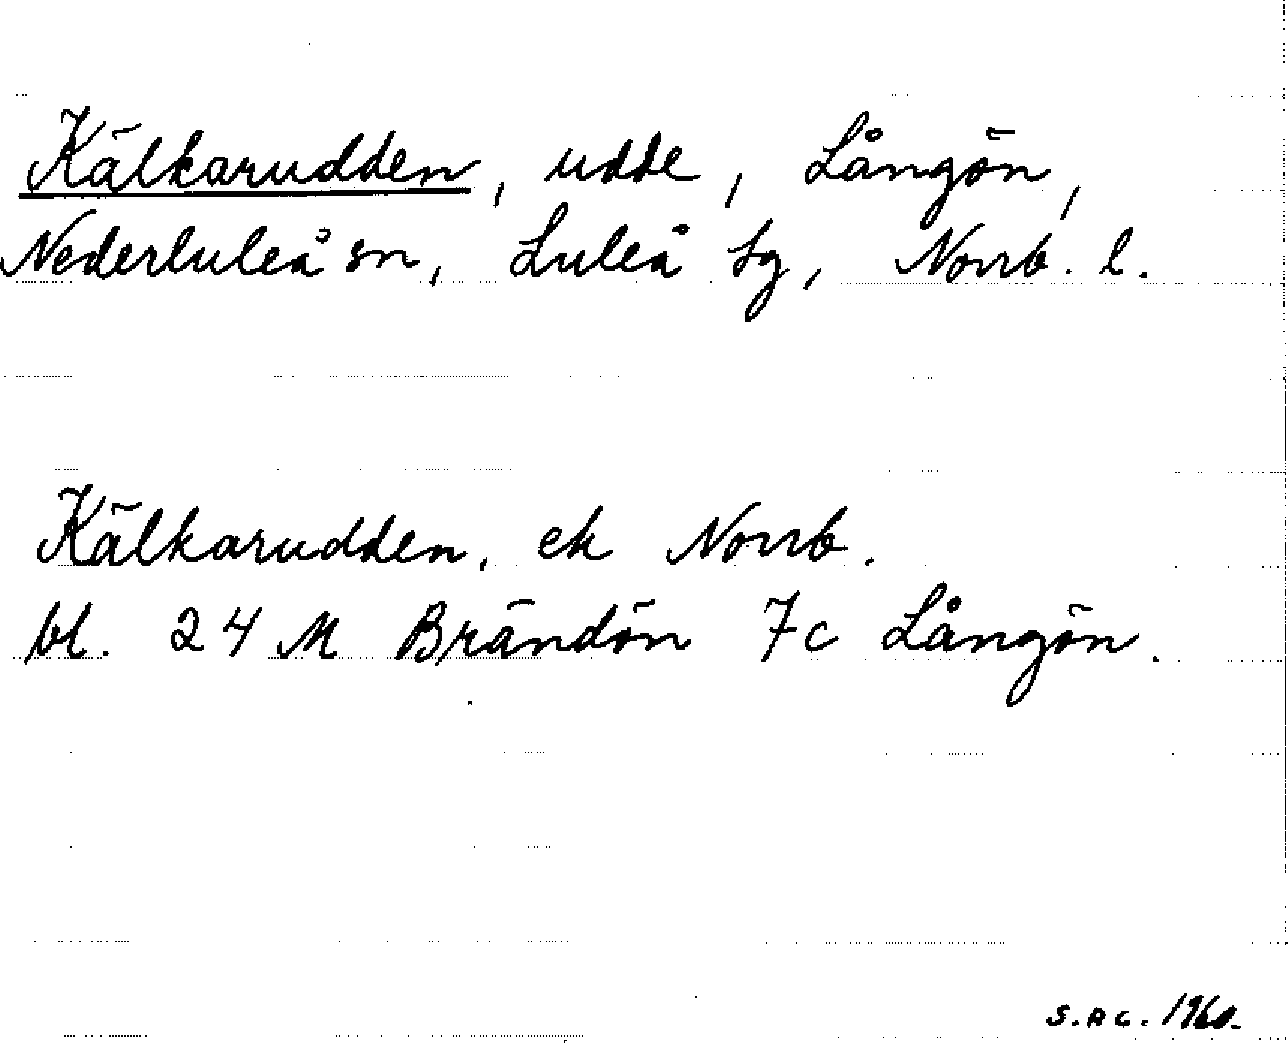 Kälkarudden, udde, Långön,
Nederluleå sn, Luleå tg, Norrb. l.
Kälkarudden, ek Norrb.
bl. 24 M Brändön 7c Långön.
1960.